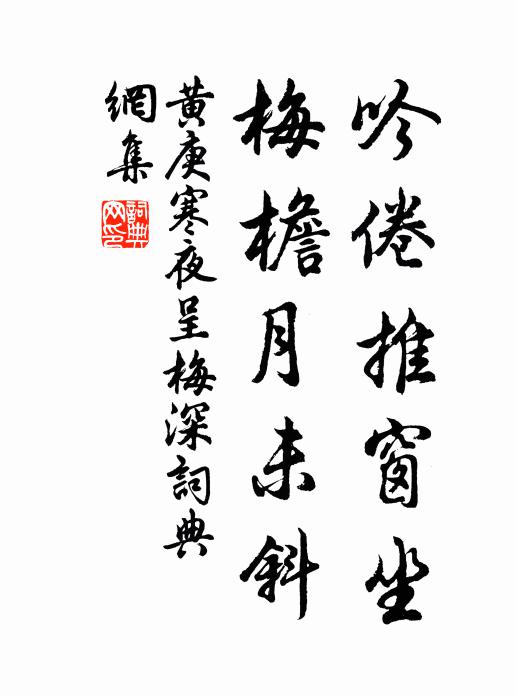 吟倦推窗坐
梅檐月未斜
黄庚寒夜呈梅深詞典
網集
詞典
网印